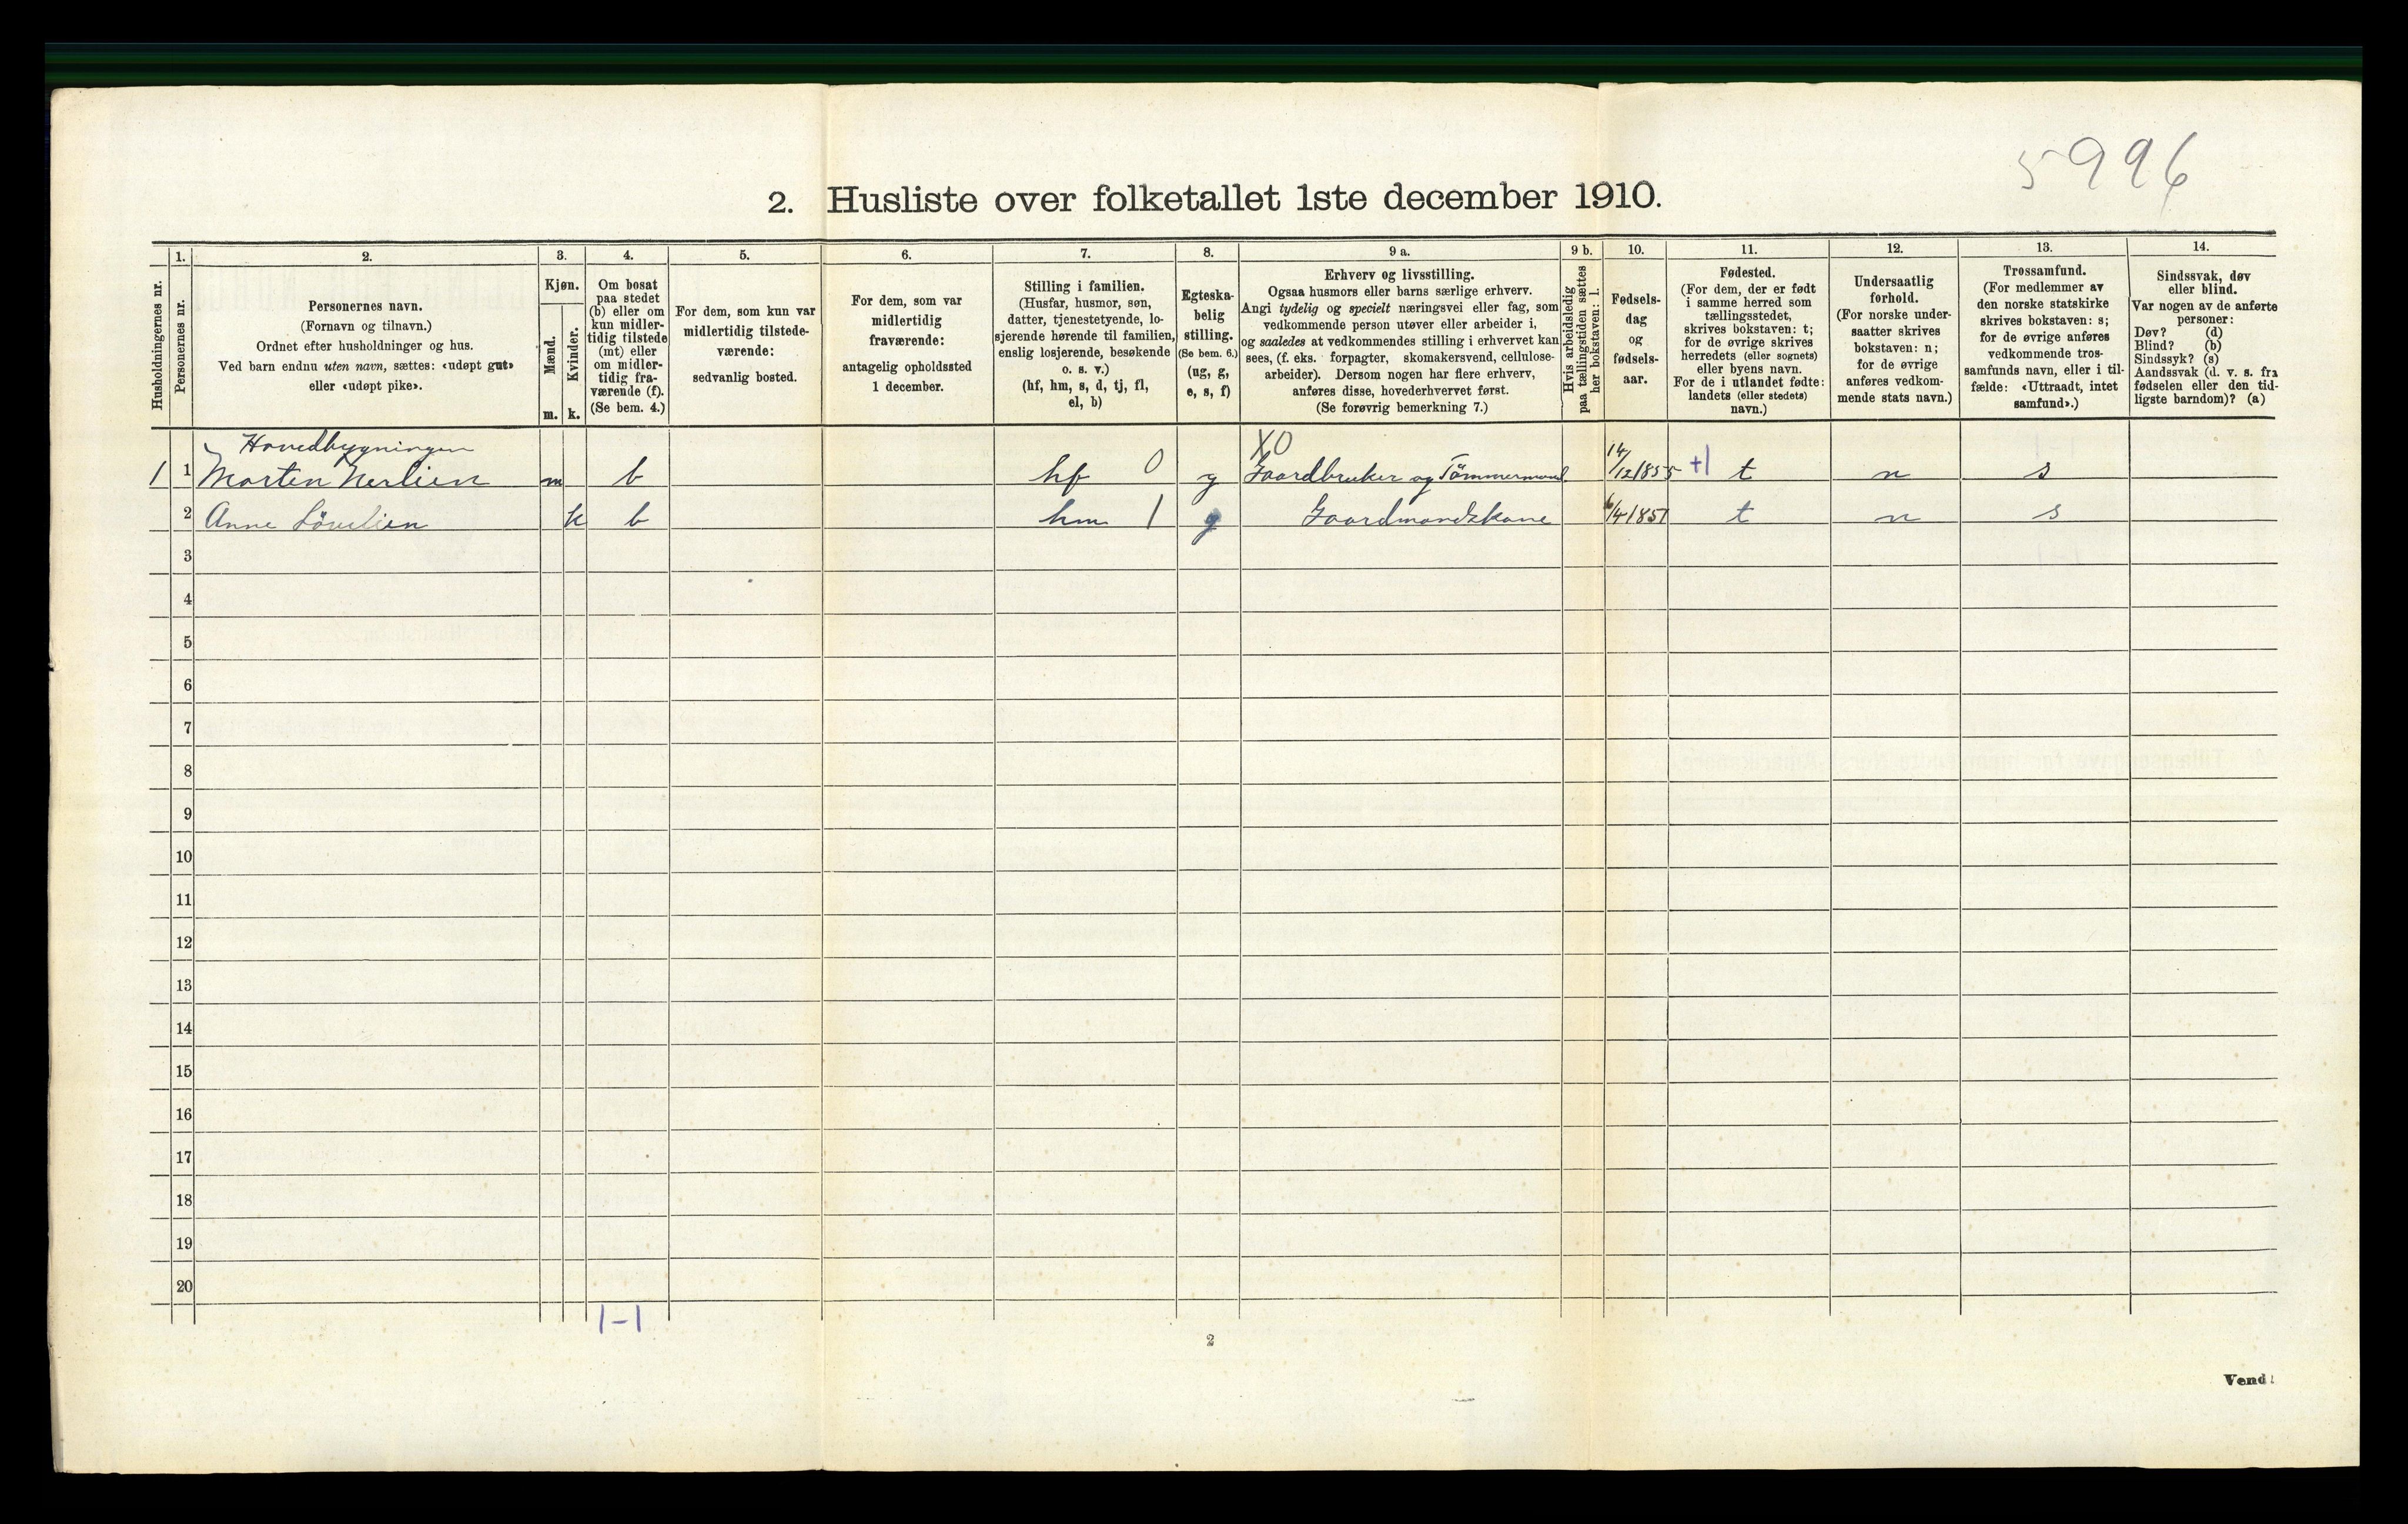 5996
2. Husliste over folketallet 1ste december 1910.
Husholdningernes nr.
1.
Personernes nr.
2.
Personernes navn.
(Fornavn og tilnavn.)
Ordnet efter husholdninger og hus.
Ved barn endnu uten navn, sættes: «udøpt gut»
eller «udøpt pike».
3.
Kjøn.
Mænd.
m.
Kvinder.
k.
4.
Om bosat
paa stedet
(b) eller om
kun midler-
tidig tilstede
(mt) eller
om midler-
tidig fra-
værende (f).
(Se bem. 4.)
5.
For dem, som kun var
midlertidig tilstede-
værende:
sedvanlig bosted.
6.
For dem, som var
midlertidig
fraværende:
antagelig opholdssted
1 december.
7.
Stilling i familien.
(Husfar, husmor, søn,
datter, tjenestetyende, lo-
sjerende hørende til familien,
enslig losjerende, besøkende
o. s. v.)
(hf, hm, s, d, tj, fl,
el, b)
8.
Egteska-
belig
stilling.
(Se bem. 6.)
(ug, g,
e, s, f)
9 a.
Erhverv og livsstilling.
Ogsaa husmors eller barns særlige erhverv.
Angi tydelig og specielt næringsvei eller fag, som
vedkommende person utøver eller arbeider i,
og saaledes at vedkommendes stilling i erhvervet kan
sees, (f. eks. forpagter, skomakersvend, cellulose-
arbeider). Dersom nogen har flere erhverv,
anføres disse, hovederhvervet først.
(Se forøvrig bemerkning 7.)
9 b.
Hvis arbeidsledig
paa tællingstiden sættes
her bokstaven: l.
10.
Fødsels-
dag
og
fødsels-
aar.
11.
Fødested.
(For dem, der er født
i samme herred som
tællingsstedet,
skrives bokstaven: t;
for de øvrige skrives
herredets (eller sognets)
eller byens navn.
For de i utlandet fødte:
landets (eller stedets)
navn.)
12.
Undersaatlig
forhold.
(For norske under-
saatter skrives
bokstaven: n;
for de øvrige
anføres vedkom-
mende stats navn.)
13.
Trossamfund.
(For medlemmer av
den norske statskirke
skrives bokstaven: s;
for de øvrige anføres
vedkommende tros-
samfunds navn, eller i til-
fælde: «Uttraadt, intet
samfund».)
14.
Sindssvak, døv
eller blind.
Var nogen av de anførte
personer:
Døv? (d)
Blind? (b)
Sindssyk? (s)
Aandssvak (d. v. s. fra
fødselen eller den tid-
ligste barndom)? (a)
Hovedbygningen
1 1 Morten Nerlien m b hf 0 g X0 Gaardbruker og Tømmermand. 14/12 1855 +1 t n s
2 Anne Lövlien k b hm 1 g Gaardmandskone 6/4 1851 t n s
3
4
5
6
7
8
9
10
11
12
13
14
15
16
17
18
19
20
1-1
2
Vend!